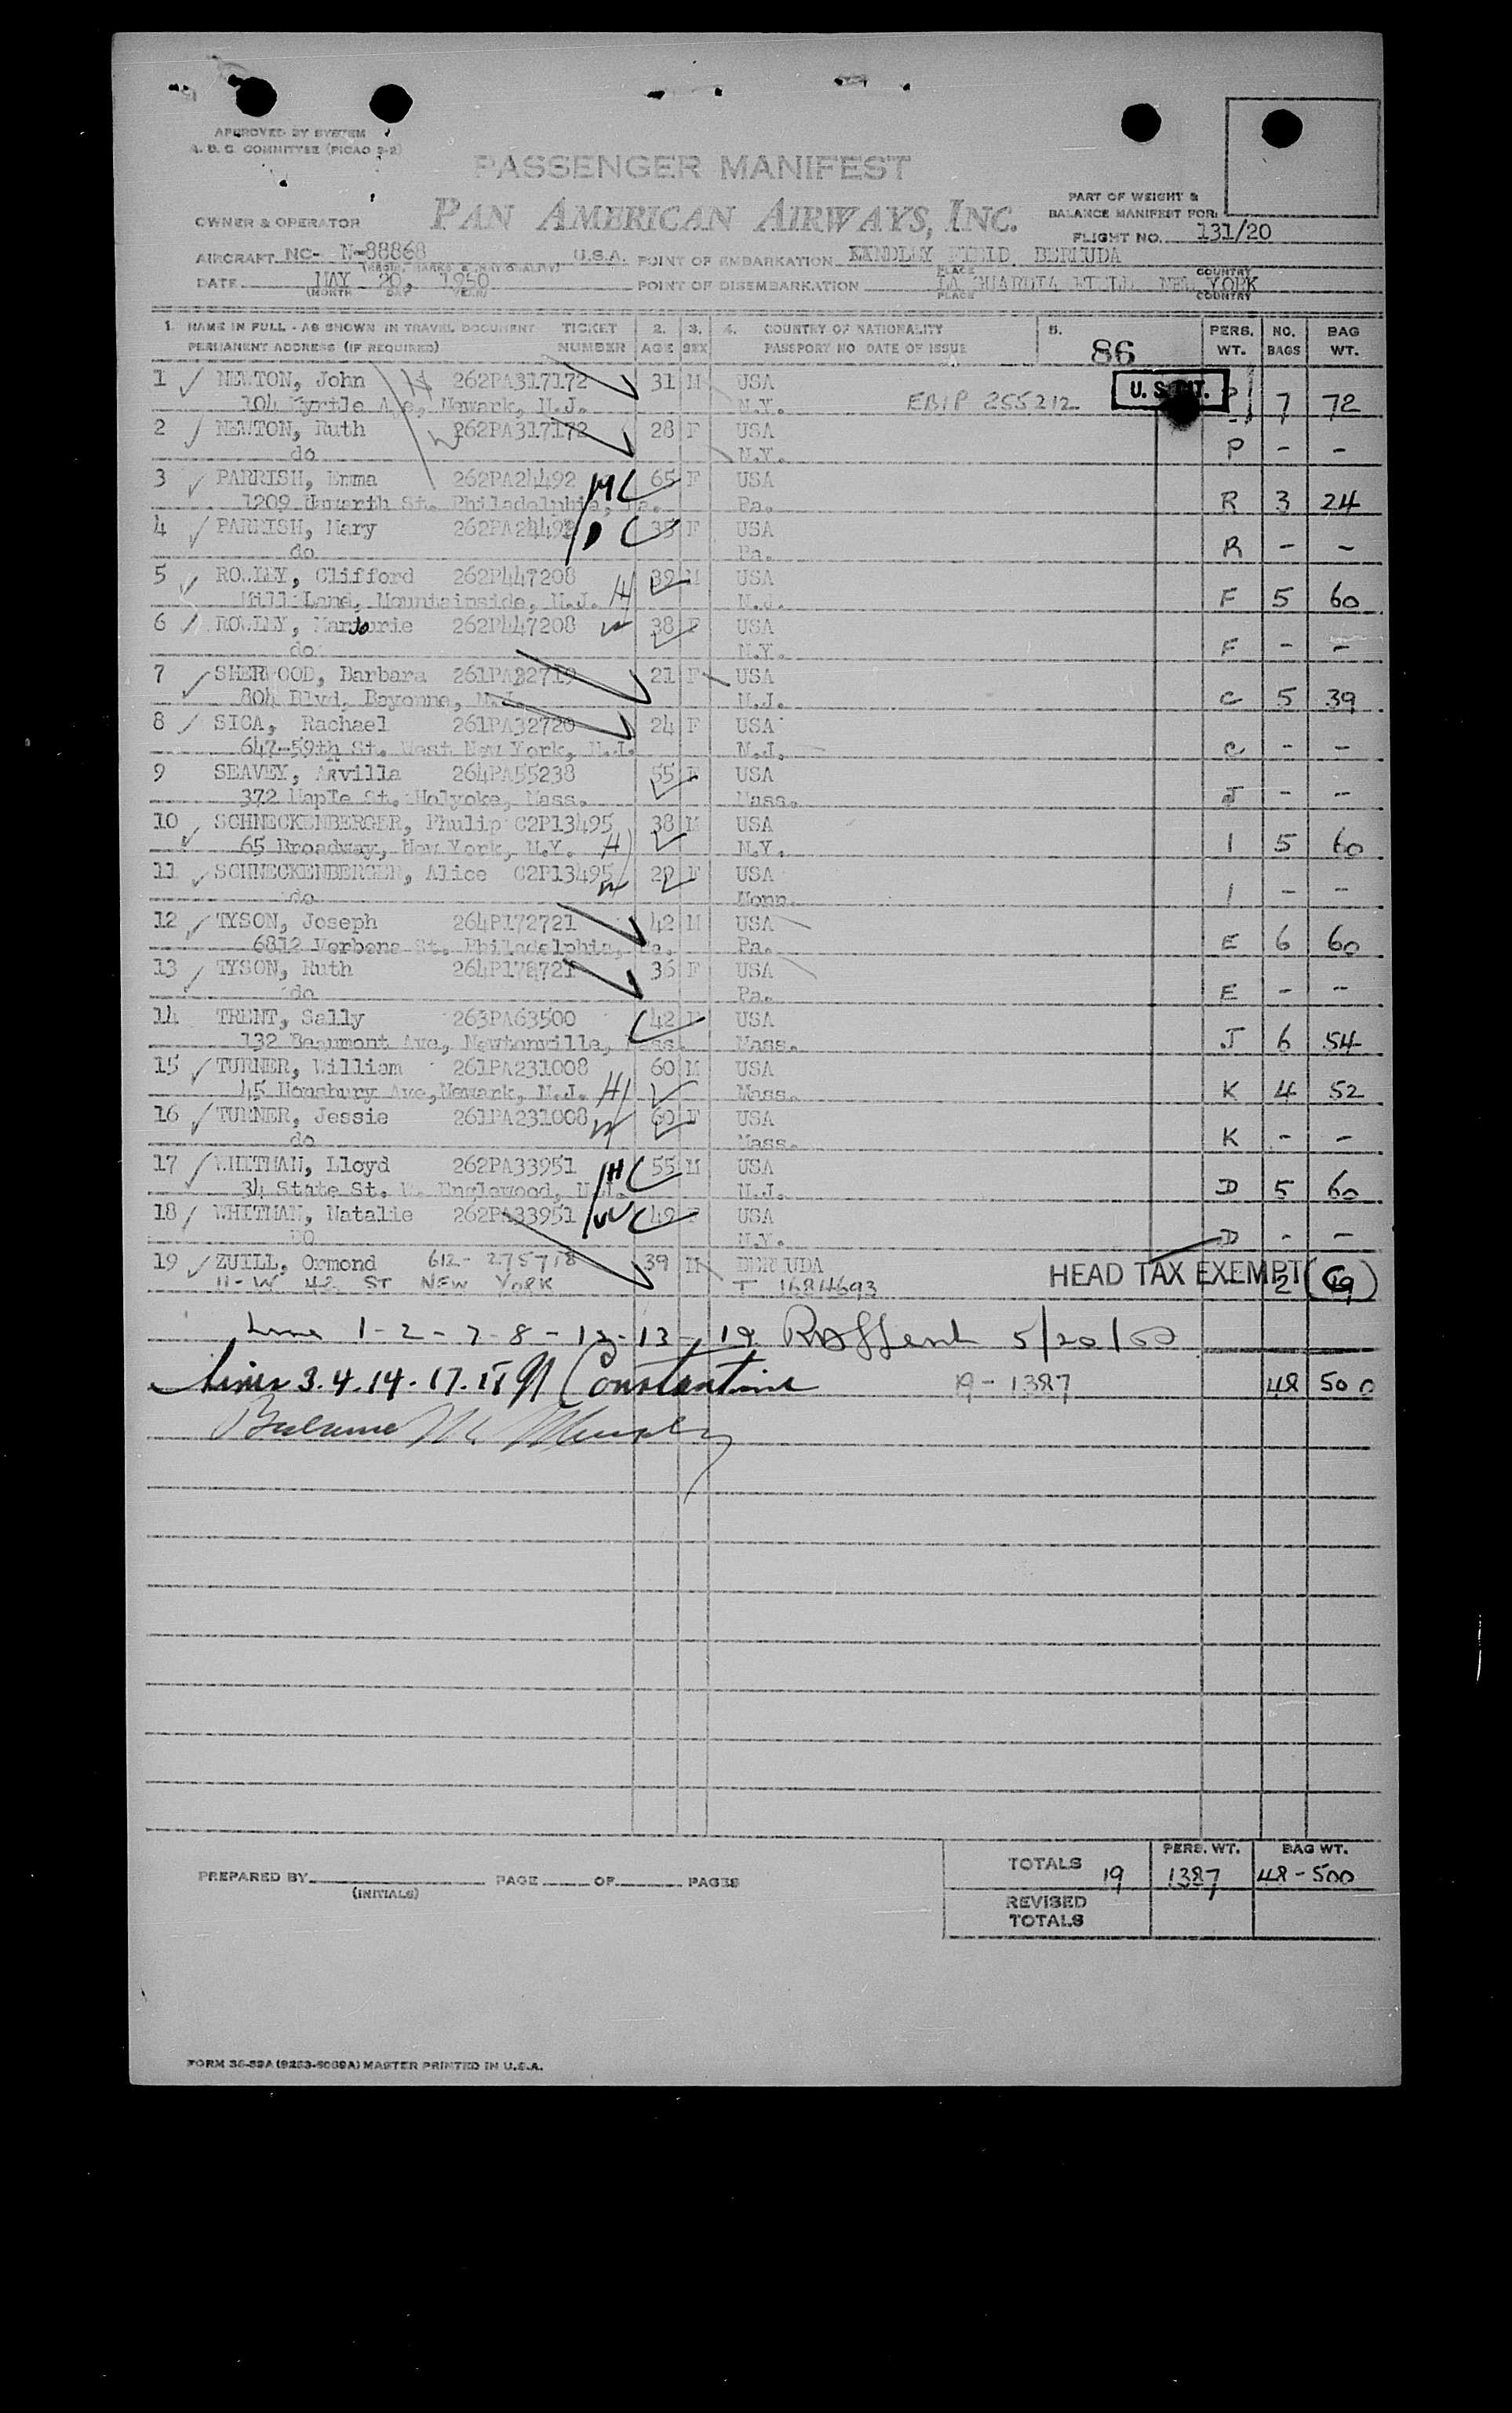 APPROVED BY SYSTEM
A. D. C. COMMITTEE (PICAO 9-2)
PASSENGER MANIFEST
PAN AMERICAN AIRWAYS, INC.
OWNER & OPERATOR
PART OF WEIGHT &
BALANCE MANIFEST FOR:
FLIGHT NO. 131/20
AIRCRAFT NC- N-88868 U.S.A. POINT OF EMBARKATION KINDLEY FIELD BERMUDA
DATE MAY 20, 1950 POINT OF DISEMBARKATION LA GUARDIA FIELD NEW YORK
(MONTH DAY YEAR) PLACE COUNTRY
1. NAME IN FULL - AS SHOWN IN TRAVEL DOCUMENT TICKET 2. 3. 4. COUNTRY OF NATIONALITY 5. PERS. NO. BAG
PERMANENT ADDRESS (IF REQUIRED) NUMBER AGE SEX PASSPORT NO DATE OF ISSUE 86 WT. BAGS WT.
1 NEWTON, John H 262PA317172 31 M USA U.S.
104 Myrtle Ave, Newark, N.J. N.Y. EBIP 255212 P 7 72
2 NEWTON, Ruth W 262PA317172 28 F USA
do N.Y. P - -
3 PARRISH, Emma 262PA24492 65 F USA
1209 St. Philadelphia, Pa. Pa. R 3 24
4 PARRISH, Mary 262PA24492 35 F USA
do Pa. R - -
5 ROWLEY, Clifford 262P447208 39 M USA
Mill Land, Mountainside, N.J. H N.J. F 5 60
6 ROWLEY, Marjorie 262P447208 W 38 F USA
do N.Y. F - -
7 SHERWOOD, Barbara 261PA32719 21 F USA
804 Blvd, Bayonne, N.J. N.J. C 5 39
8 SICA, Rachael 261PA32720 24 F USA
647-59th St. West New York, N.J. N.J. C - -
9 SEAVEY, Arvilla 264PA55238 55 F USA
372 Maple St. Holyoke, Mass. Mass. J - -
10 SCHNECKENBERGER, Phulip C2P13495 38 M USA
65 Broadway, New York, N.Y. H N.Y. I 5 60
11 SCHNECKENBERGER, Alice C2P13495 W F USA
do I - -
12 TYSON, Joseph 264P172721 42 M USA
6812 Verbena St. Philadelphia, Pa. Pa. E 6 60
13 TYSON, Ruth 264P172721 36 F USA
do Pa. E - -
14 TRENT, Sally 263PA63500 42 F USA
132 Beaumont Ave, Newtonville, Mass. Mass. J 6 54
15 TURNER, William 261PA231008 60 M USA
45 Ave, Newark, N.J. H Mass. K 4 52
16 TURNER, Jessie 261PA231008 W 60 F USA
do Mass. K - -
17 WHITMAN, Lloyd 262PA33951 H 55 M USA
34 State St. Englewood, N.J. N.J. D 5 60
18 WHITMAN, Natalie 262PA33951 W 49 F USA
DO N.Y. D - -
19 ZUILL, Ormond 612-275718 39 M BERMUDA
11-W 42 ST NEW YORK T 1684693 HEAD TAX EXEMPT 2 19
Line 1-2-7-8-12-13-19 5/20/50
Lines 3.4.14.17.18 Constantine 19-1387 48 500
TOTALS 19 PERS. WT. 1387 BAG WT. 48-500
PREPARED BY (INITIALS) PAGE OF PAGES
REVISED TOTALS
FORM 36-59A (9253-5059A) MASTER PRINTED IN U.S.A.